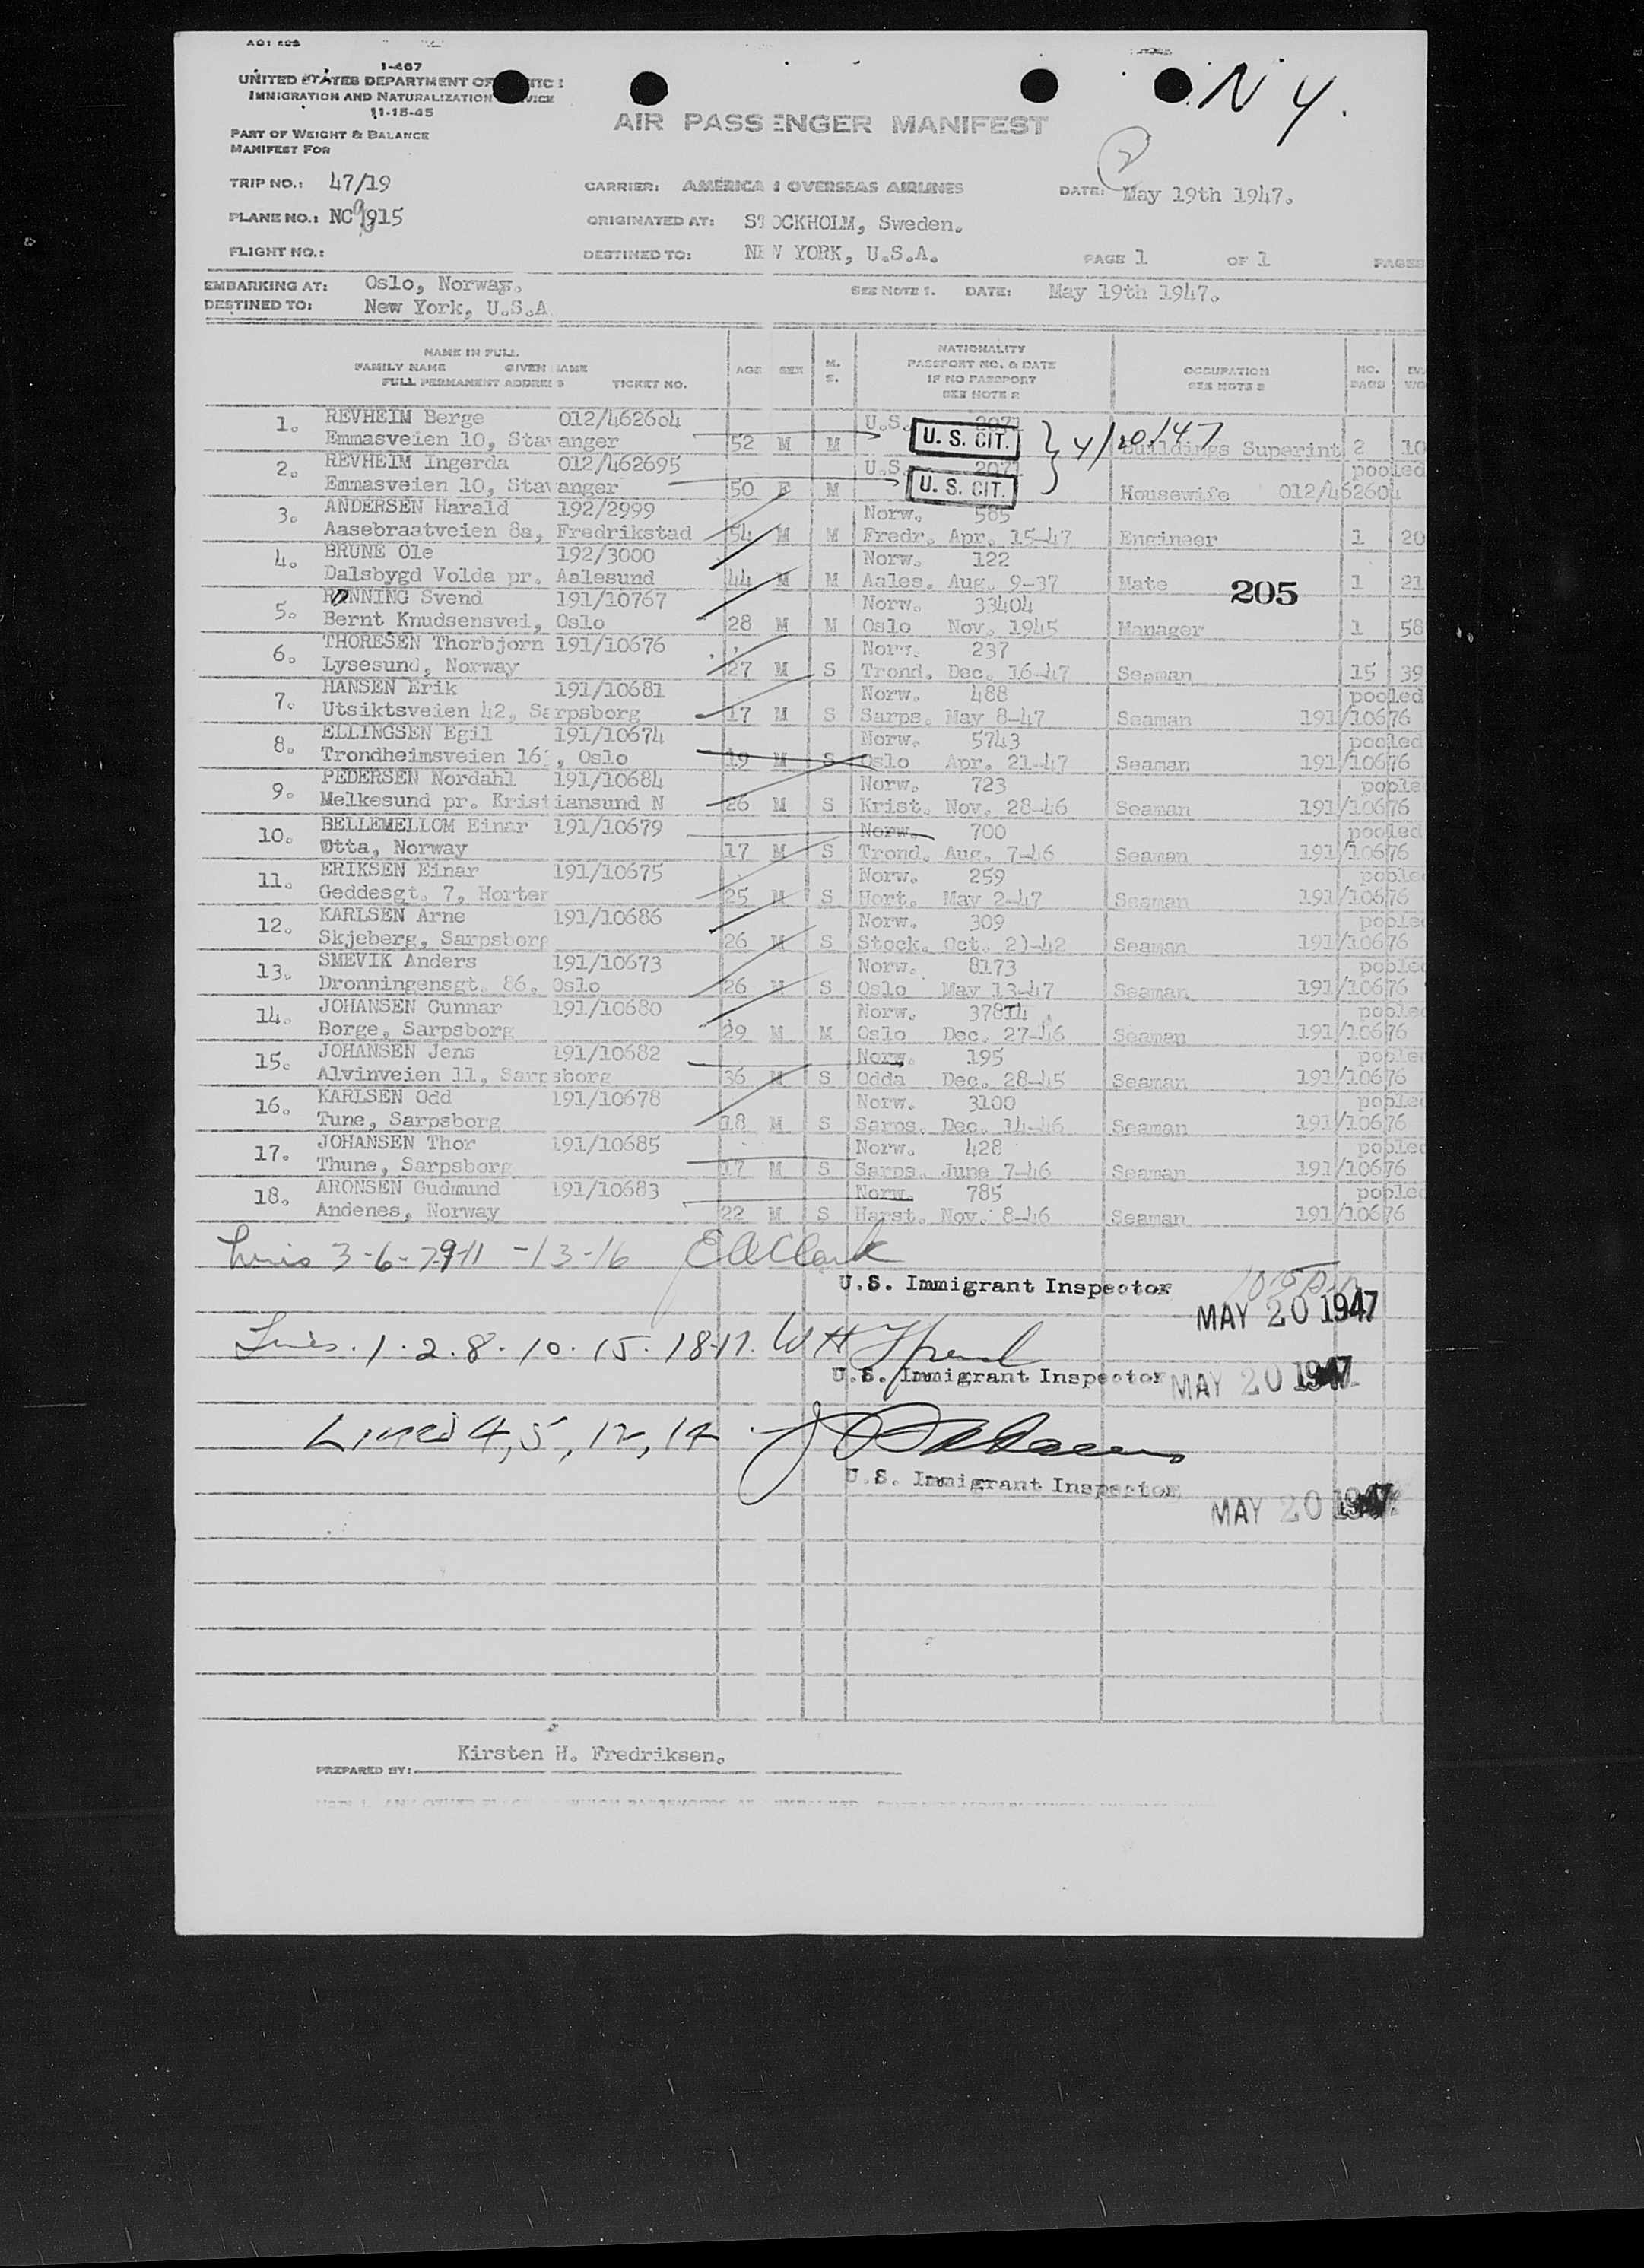 1-467
UNITED STATES DEPARTMENT OF
IMMIGRATION AND NATURALIZATION
11-15-45
PART OF WEIGHT & BALANCE
MANIFEST FOR
N Y.
AIR PASSENGER MANIFEST
2
TRIP NO.: 47/19
CARRIER: AMERICAN OVERSEAS AIRLINES
DATE: May 19th 1947.
PLANE NO.: NC 915
ORIGINATED AT: STOCKHOLM, Sweden.
FLIGHT NO.:
DESTINED TO: NEW YORK, U.S.A.
PAGE 1 OF 1 PAGES
EMBARKING AT: Oslo, Norway.
SEE NOTE 1. DATE: May 19th 1947.
DESTINED TO: New York, U.S.A
NAME IN FULL
FAMILY NAME GIVEN NAME
FULL PERMANENT ADDRESS TICKET NO.
AGE SEX M. S.
NATIONALITY
PASSPORT NO. & DATE
IF NO PASSPORT
SEE NOTE 2
OCCUPATION
SEE NOTE 2
NO.
BAGS
1. REVHEIM Berge 012/462604 U.S. 2071
Emmasveien 10, Stavanger 52 M M U. S. CIT. Buildings Superint 2 10
4/10/47
2. REVHEIM Ingerda 012/462695 U.S. 2071 pooled
Emmasveien 10, Stavanger 50 F M U. S. CIT. Housewife 012/462604
3. ANDERSEN Harald 192/2999 Norw. 585
Aasebraatveien 8a, Fredrikstad 54 M M Fredr. Apr. 15-47 Engineer 1 20
4. BRUNE Ole 192/3000 Norw. 122
Dalsbygd Volda pr. Aalesund 44 M M Aales. Aug. 9-37 Mate 1 21
205
5. RØNNING Svend 191/10767 Norw. 33404
Bernt Knudsensvei, Oslo 28 M M Oslo Nov. 1945 Manager 1 58
6. THORESEN Thorbjorn 191/10676 Norw. 237
Lysesund, Norway 27 M S Trond. Dec. 16-47 Seaman 15 39
7. HANSEN Erik 191/10681 Norw. 488 pooled
Utsiktsveien 42, Sarpsborg 17 M S Sarps. May 8-47 Seaman 191/10676
8. ELLINGSEN Egil 191/10674 Norw. 5743 pooled
Trondheimsveien 16 , Oslo 19 M S Oslo Apr. 21-47 Seaman 191/10676
9. PEDERSEN Nordahl 191/10684 Norw. 723 pooled
Melkesund pr. Kristiansund N 26 M S Krist. Nov. 28-46 Seaman 191/10676
10. BELLEMELLOM Einar 191/10679 Norw. 700 pooled
Otta, Norway 17 M S Trond. Aug. 7-46 Seaman 191/10676
11. ERIKSEN Einar 191/10675 Norw. 259 pooled
Geddesgt. 7, Horten 25 M S Hort. May 2-47 Seaman 191/10676
12. KARLSEN Arne 191/10686 Norw. 309 pooled
Skjeberg, Sarpsborg 26 M S Stock. Oct. -42 Seaman 191/10676
13. SMEVIK Anders 191/10673 Norw. 8173 pooled
Dronningensgt. 86, Oslo 26 M S Oslo May 13-47 Seaman 191/10676
14. JOHANSEN Gunnar 191/10680 Norw. 37814 pooled
Borge, Sarpsborg 29 M M Oslo Dec. 27-46 Seaman 191/10676
15. JOHANSEN Jens 191/10682 Norw. 195 pooled
Alvinveien 11, Sarpsborg 36 M S Odda Dec. 28-45 Seaman 191/10676
16. KARLSEN Odd 191/10678 Norw. 3100 pooled
Tune, Sarpsborg 18 M S Sarps. Dec. 14-46 Seaman 191/10676
17. JOHANSEN Thor 191/10685 Norw. 428 pooled
Thune, Sarpsborg 17 M S Sarps. June 7-46 Seaman 191/10676
18. ARONSEN Gudmund 191/10683 Norw. 785 pooled
Andenes, Norway 22 M S Harst. Nov. 8-46 Seaman 191/10676
Lines 3-6-7-9-11-13-16 E A Clark
U.S. Immigrant Inspector
MAY 20 1947
Lines. 1. 2. 8. 10. 15. 18-17. W H
U.S. Immigrant Inspector MAY 20 1947
Lines 4, 5, 12, 14
U.S. Immigrant Inspector
MAY 20 1947
Kirsten H. Fredriksen.
PREPARED BY: